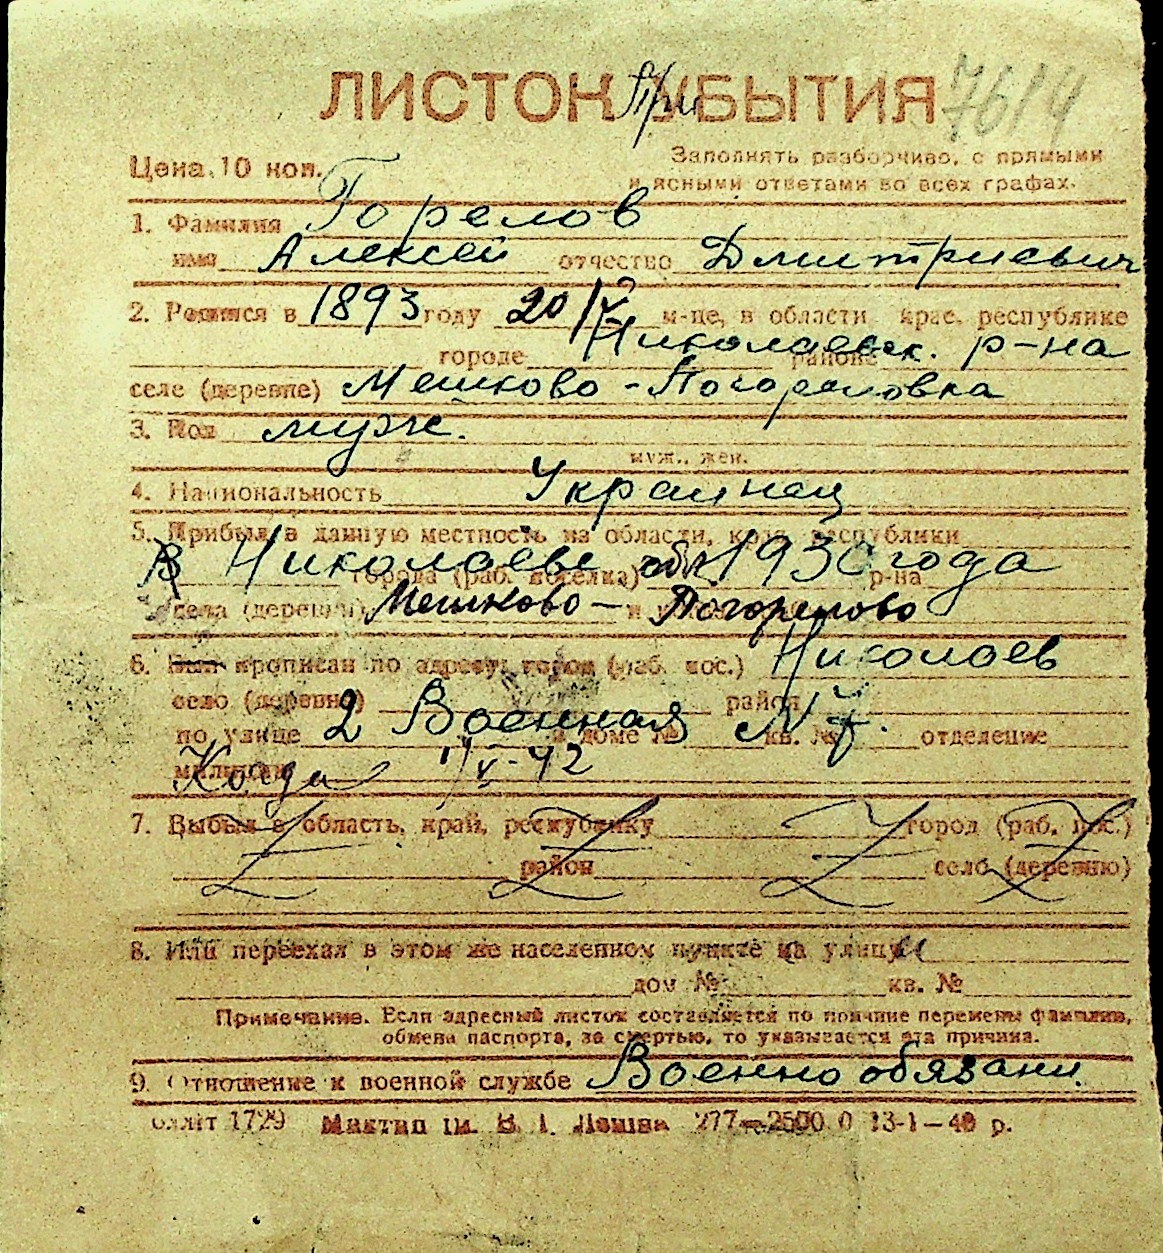 ЛИСТОК При УБЫТИЯ 7614
Цена 10 коп.
Заполнять разборчиво, с прямыми
и ясными ответами во всех графах.
1. Фамилия Горелов
имя Алексей отчество Дмитриевич
2. Родился в 1893 году 20/V м-це, в области, крае, республике
городе Николаевск. районе р-на
селе (деревне) Мешково-Погореловка
3. Пол муж.
муж., жен.
4. Национальность Украинец
5. Прибыл в данную местность из области, края, республики
В Николаеве обл 1930 года
города (раб. поселка) р-на
села (деревни) Мешково-Погорелово
6. Был прописан по адресу: город (раб. пос.) Николаев
село (деревне) район
по улице 2 Военная в доме № 7. кв. № отделение
милиции Когда V-42
7. Выбыл в область, край, республику город (раб. пос.)
район село (деревню)
8. Или переехал в этом же населенном пункте на улицу
дом № кв. №
Примечание. Если адресный листок составляется по причине перемены фамилии,
обмена паспорта, за смертью, то указывается эта причина.
9. Отношение к военной службе Военнообязанн.
1729 ім. 13-1-40 р.